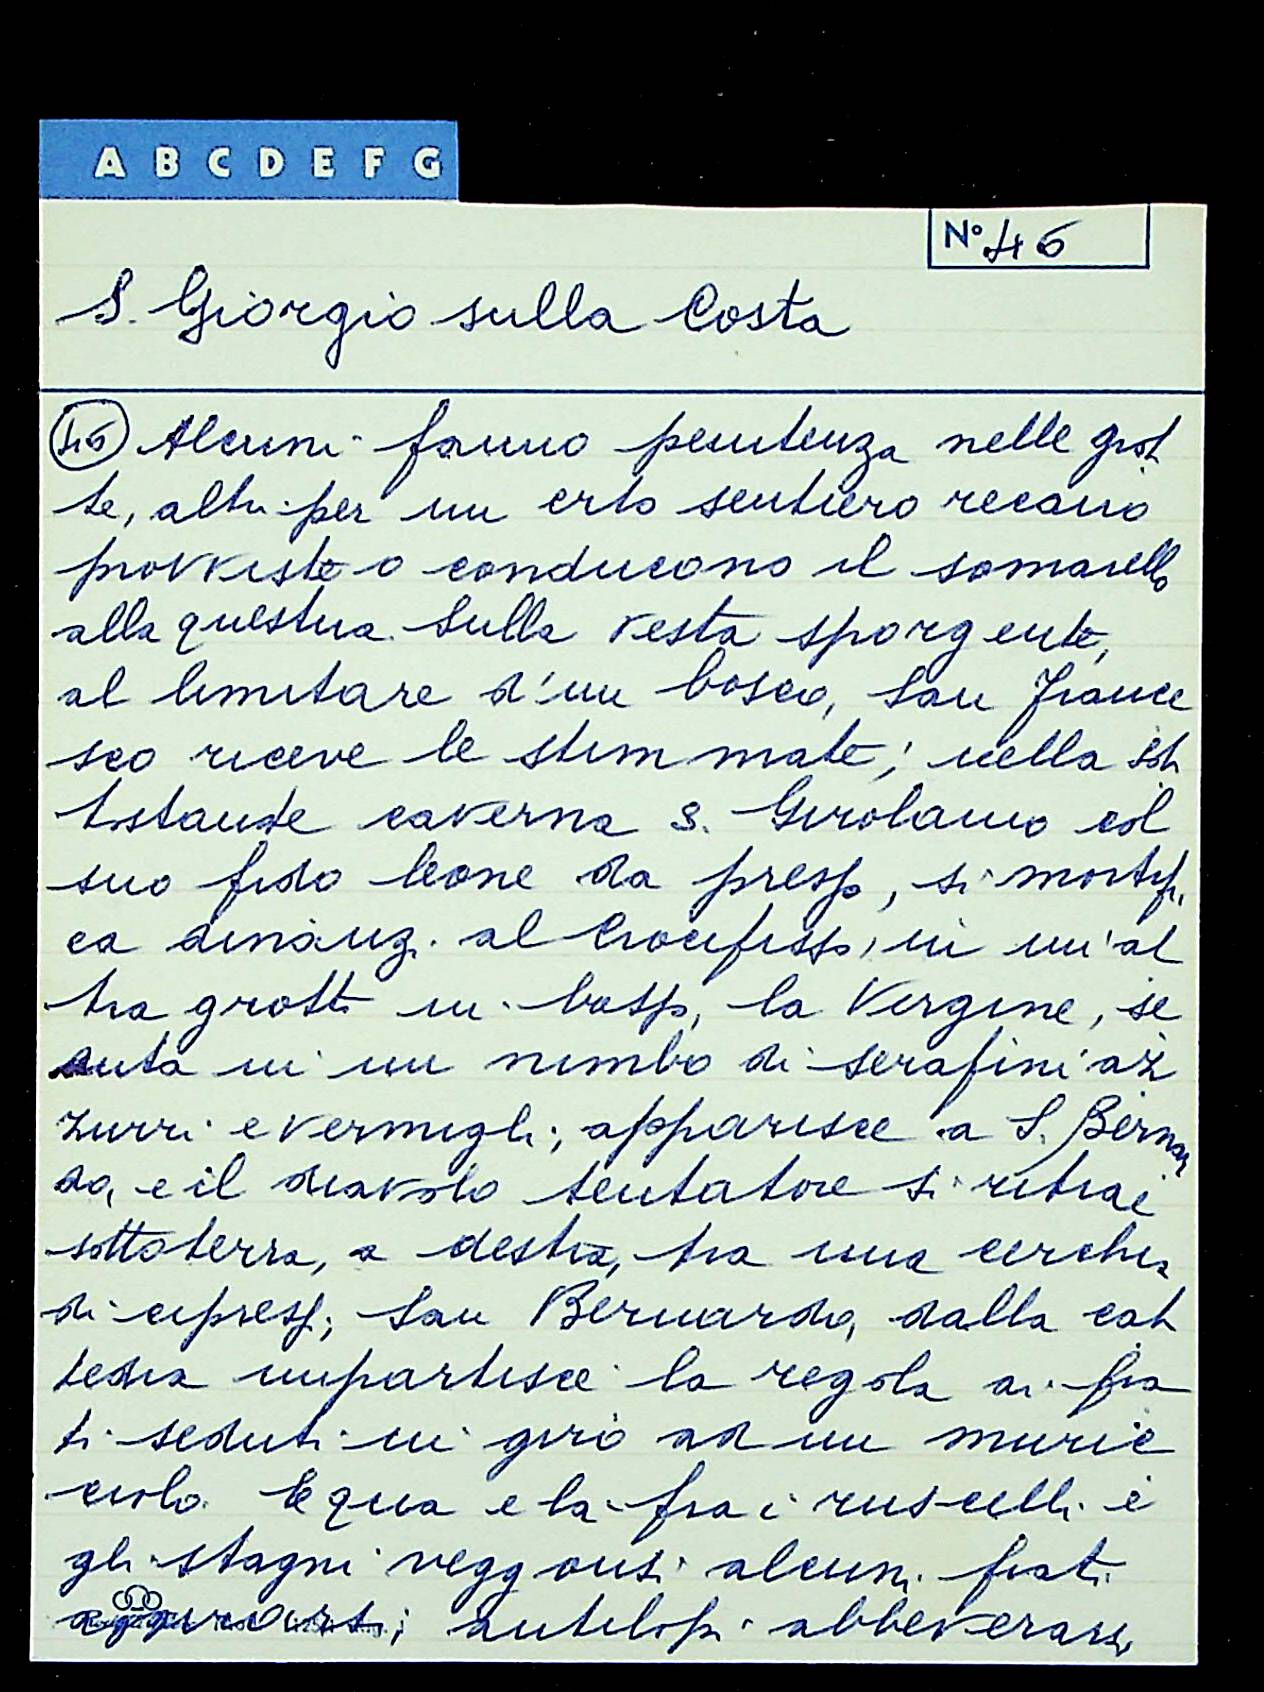 A B C D E F G
N° 46
S. Giorgio sulla Costa
46 Alcuni fanno penitenza nelle grot
te, altri per un erto sentiero recano
provviste o conducono il somarello
alla questua. Sulla vesta sporgente,
al limitare d'un bosco, San France
sco riceve le stimmate; nella sot
tostante caverna S. Girolamo col
suo fido leone da presso, si mortifi
ca dinanzi al Crocifisso, in un'al
tra grotta in basso, la Vergine, se
duta in un nimbo di serafini az
zurri e vermigli, apparisce a S. Bernar
do, e il diavolo tentatore si ritrae
sottoterra, a destra, tra una cerchia
di cipressi, San Bernardo, dalla cat
tedra impartisce la regola ai fra
ti seduti in giro ad un muric
ciolo. E qua e là fra i ruscelli e
gli stagni veggonsi alcuni frati
antilopi abbeverarsi,